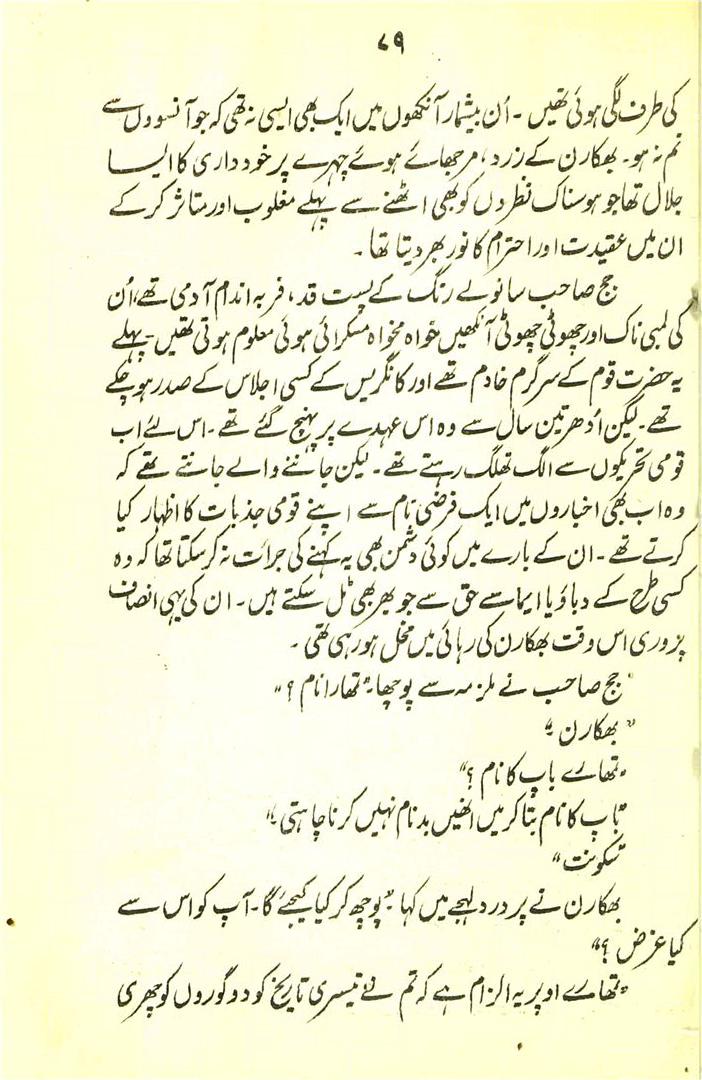 ۷۹
کی طرف لگی ہوئی تھیں ۔ اُن بیشمار آنکھوں میں ایک بھی ایسی نہ تھی کہ جو آنسوؤں سے
نم نہ ہو۔ بھکارن کے زرد، مرجھائے ہوئے چہرے پر خودداری کا ایسا
جلال تھا جو ہوسناک نظروں کو بھی اٹھنے سے پہلے مغلوب اور متاثر کر کے
ان میں عقیدت اور احترام کا نور بھر دیتا تھا۔
جج صاحب سانولے رنگ کے پست قد، فربہ اندام آدمی تھے، اُن
کی لمبی ناک اور چھوٹی چھوٹی آنکھیں خواہ مخواہ مسکرائی ہوئی معلوم ہوتی تھیں۔ پہلے
یہ حضرت قوم کے سرگرم خادم تھے اور کانگریس کے کسی اجلاس کے صدر ہو چکے
تھے۔ لیکن اُدھر تین سال سے وہ اس عہدے پر پہنچ گئے تھے ۔ اس لئے اب
قومی تحریکوں سے الگ تھلگ رہتے تھے۔ لیکن جاننے والے جانتے تھے کہ
وہ اب بھی اخباروں میں ایک فرضی نام سے اپنے قومی جذبات کا اظہار کیا
کرتے تھے ۔ ان کے بارے میں کوئی دشمن بھی یہ کہنے کی جرائت نہ کر سکتا تھا کہ وہ
کسی طرح کے دباؤ یا ایما سے حق سے جو بھر بھی ٹل سکتے ہیں۔ ان کی یہی انصاف
پزوری اس وقت بھکارن کی رہائی میں مخل ہو رہی تھی ۔
جج صاحب نے ملزمہ سے پوچھا۔ "تمھارا نام ؟"
"بھکارن ۔"
"تمھارے باپ کا نام ؟"
"باپ کا نام بتا کر میں انھیں بدنام نہیں کرنا چاہتی ۔"
"سکونت"
بھکارن نے پر درد لہجے میں کہا ۔ "پوچھ کر کیا کیجئے گا۔ آپ کو اس سے
کیا غرض ؟"
"تمھارے اوپر یہ الزام ہے کہ تم نے تیسری تاریخ کو دو گوروں کو چھری